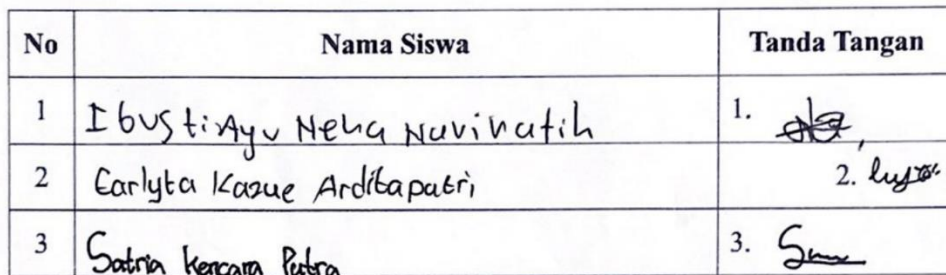 No Nama Siswa Tanda Tangan
1 I Gusti Ayu Neha Navinatih 1.
2 Carlyta Kazue Arditaputri 2.
3 Satria Kencana Putra 3.